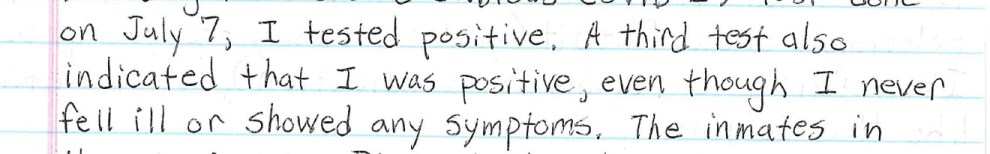 on July 7, I tested positive. A third test also
indicated that I was positive, even though I never
fell ill or showed any symptoms. The inmates in